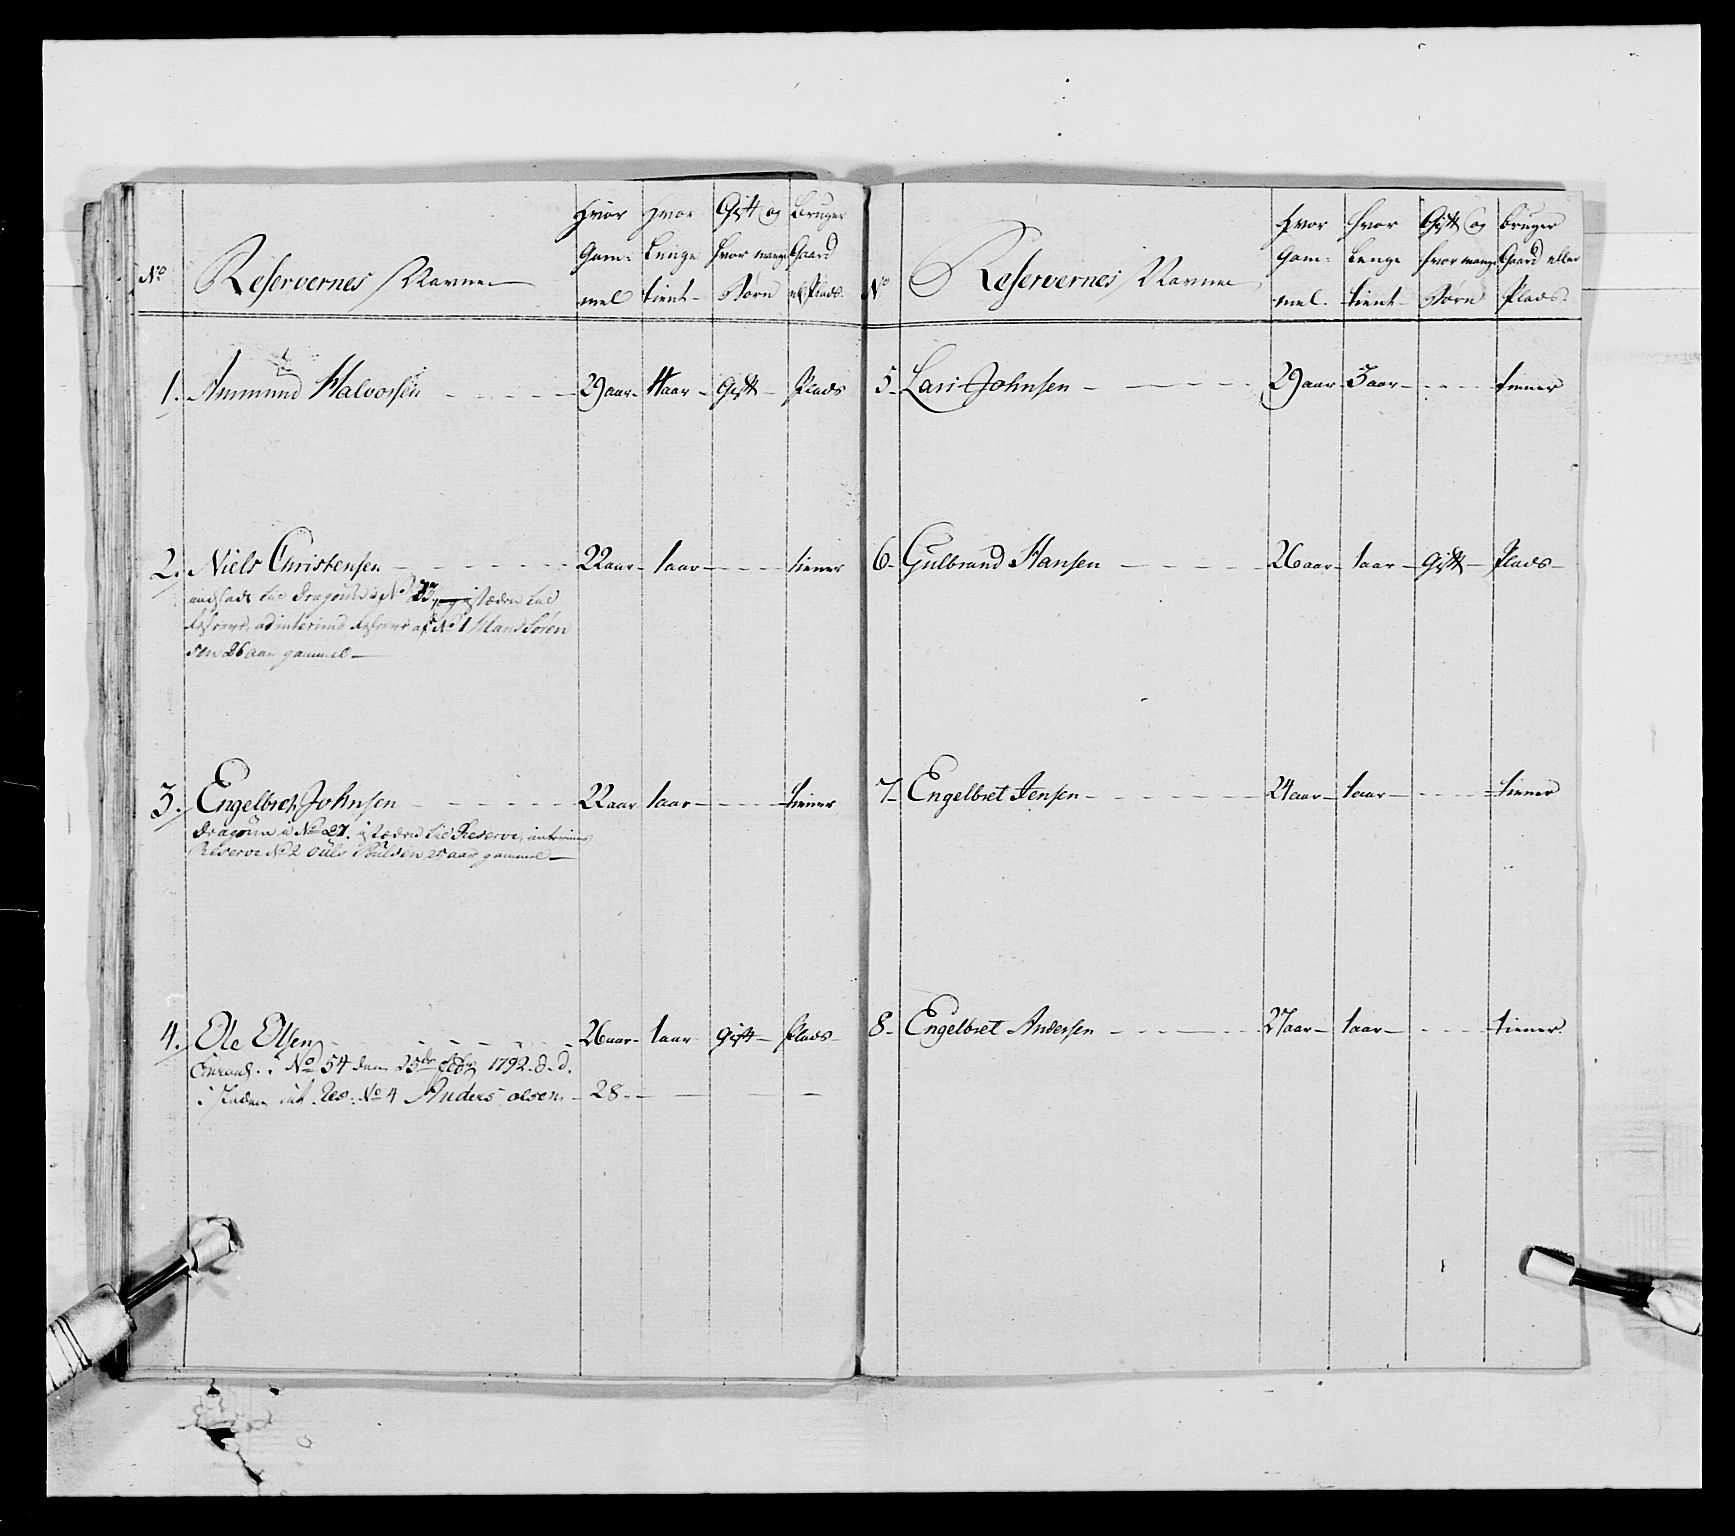 No
Reservernes Navne
Hvor
Gam-
mel
Hvor
Lenge
tient
Gift og
hvor mange
Børn
Bruger
Gaard
el Plads
1. Ammund Halvorsen 29 aar 4 aar Gift Plads
2. Niels Christensen 22 aar 1 aar tiener
andsadt til Dragoun i No istæden til
Reserve, ad interims Reserve af No 1 Hans Sören
sen 26 aar gammel
3. Engelbret Johnsen 22 aar 1 aar tiener
Dragoun i No 27. istæden til Reserve, interims
Reserve No 2 Ouls Poulsen 25 aar gammel
4. Ole Olsen 26 aar 1 aar gift Plads
i No 54 den 25de 1792. d. d.
i Staden int. Res. No 4 Anders olsen 28.
No
Reservernes Navne
Hvor
Gam-
mel.
hvor
Lenge
tient
Gift og
hvor mange
Børn
bruger
Gaard eller
Plads
5 Lars Johnsen 29 aar 3 aar tiener
6 Gulbrand Hansen 26 aar 1 aar Gift Plads
7 Engelbret Jensen 24 aar 1 aar tiener
8 Engelbret Andersen 27 aar 1 aar tiener